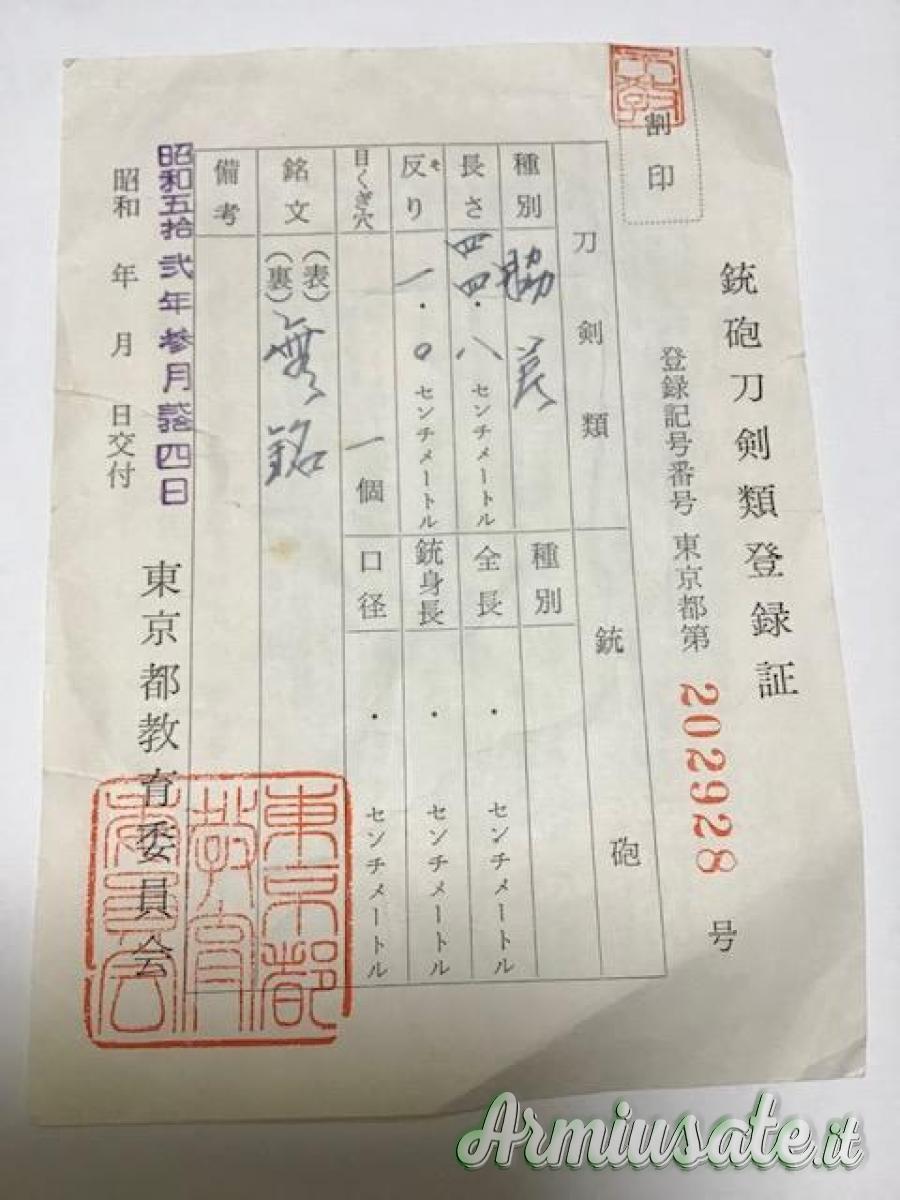 割印
銃砲刀剣類登録証
登録記号番号 東京都第 202928 号
刀剣類
銃砲
種別 脇差
長さ 四四・八 センチメートル
反り ソ 一・〇 センチメートル
目くぎ穴 一個
銘文 (表) (裏) 無銘
備考
種別
全長 ・ センチメートル
銃身長 ・ センチメートル
口径 ・ センチメートル
昭和五拾弐年参月 四日
昭和 年 月 日交付
東京都教育委員会
東京都
教育
委員会
Armiusate.it